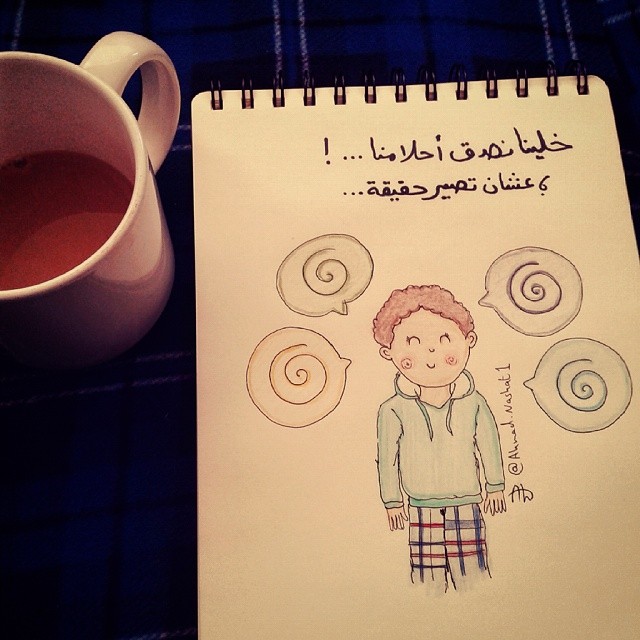 خلينا نصدق أحلامنا ... !
؛ عشان تصير حقيقة ...
@Ahmad.Nashat1